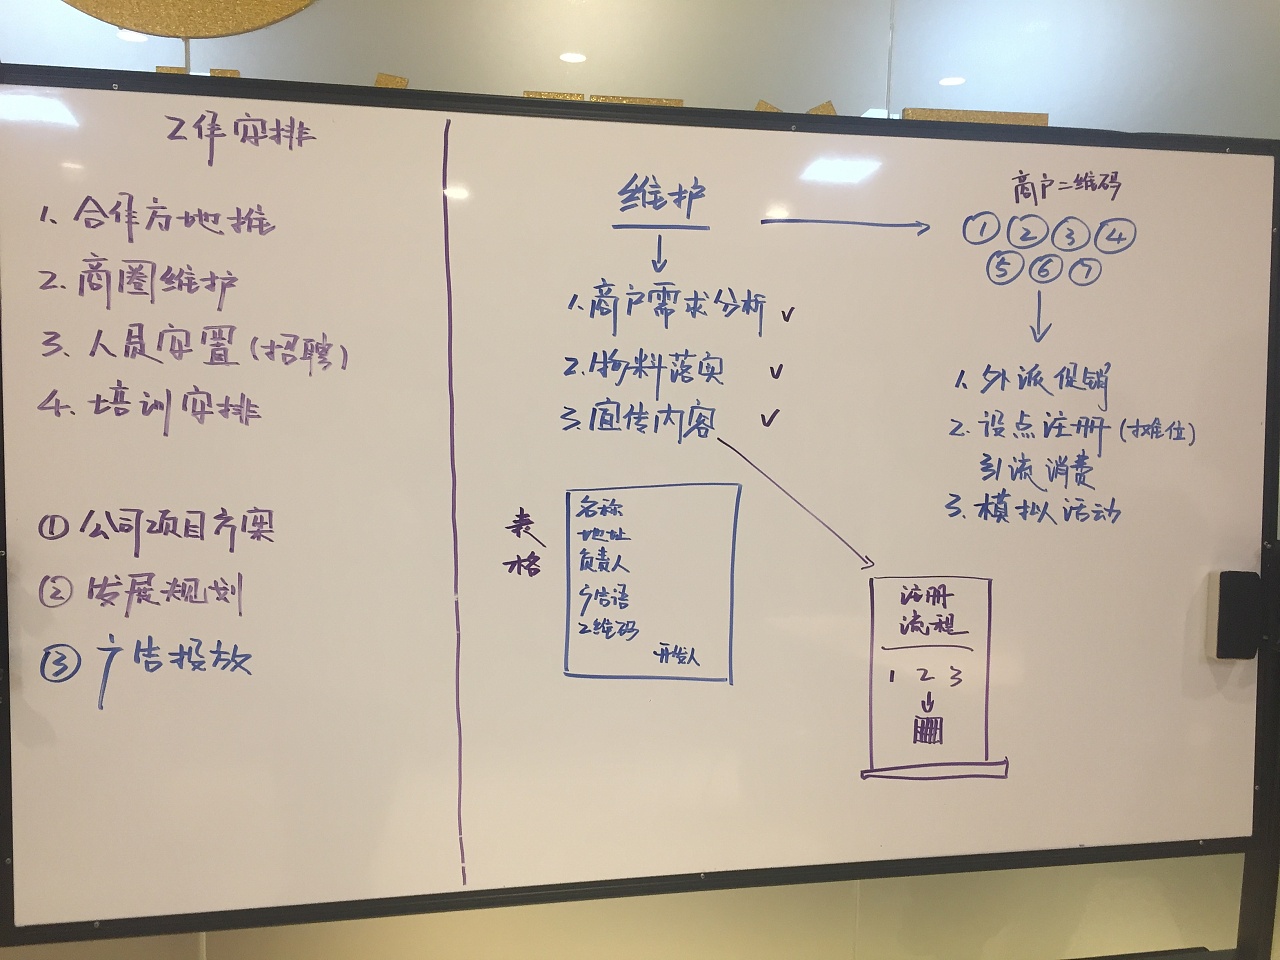 工作安排
1. 合作方地推
2. 商圈维护
3. 人员安置(招聘)
4. 培训安排
① 公司项目方案
② 发展规划
③ 广告投放
维护
1. 商户需求分析 ✓
2. 物料落实 ✓
3. 宣传内容 ✓
表格
名称
地址
负责人
广告语
二维码
开发人
商户二维码
① ② ③ ④
⑤ ⑥ ⑦
1. 外派促销
2. 设点注册(摊位)
引流消费
3. 模拟活动
注册
流程
1 2 3